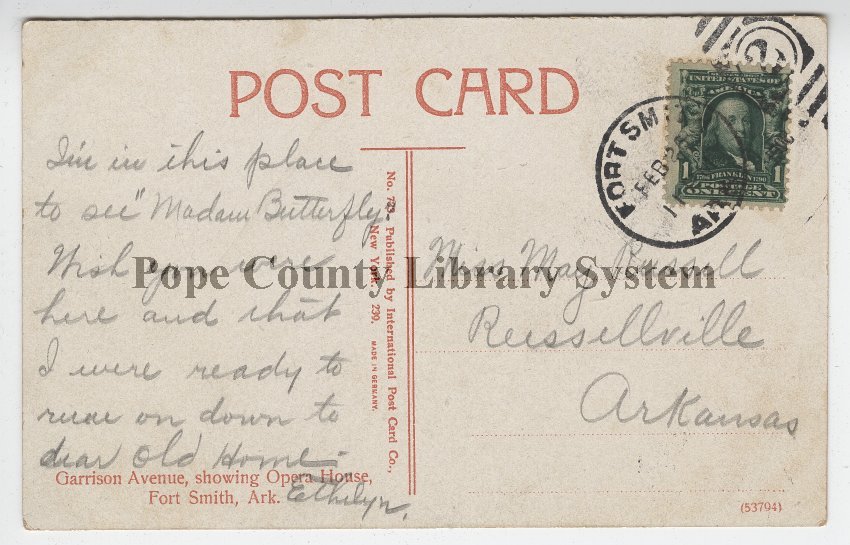 POST CARD
I'm in this place
to see "Madam Butterfly"
Wish you were
here and that
I were ready to
run on down to
dear Old Home –
Ethelyn.
Garrison Avenue, showing Opera House,
Fort Smith, Ark.
No. 723. Published by International Post Card Co.,
New York. 239. MADE IN GERMANY.
UNITED STATES OF
AMERICA
1 1
1706 FRANKLIN 1790
POSTAGE
ONE CENT
FORT SMITH
FEB 26
ARK
2
Miss May Russell
Russellville
Arkansas
(53794)
Pope County Library System